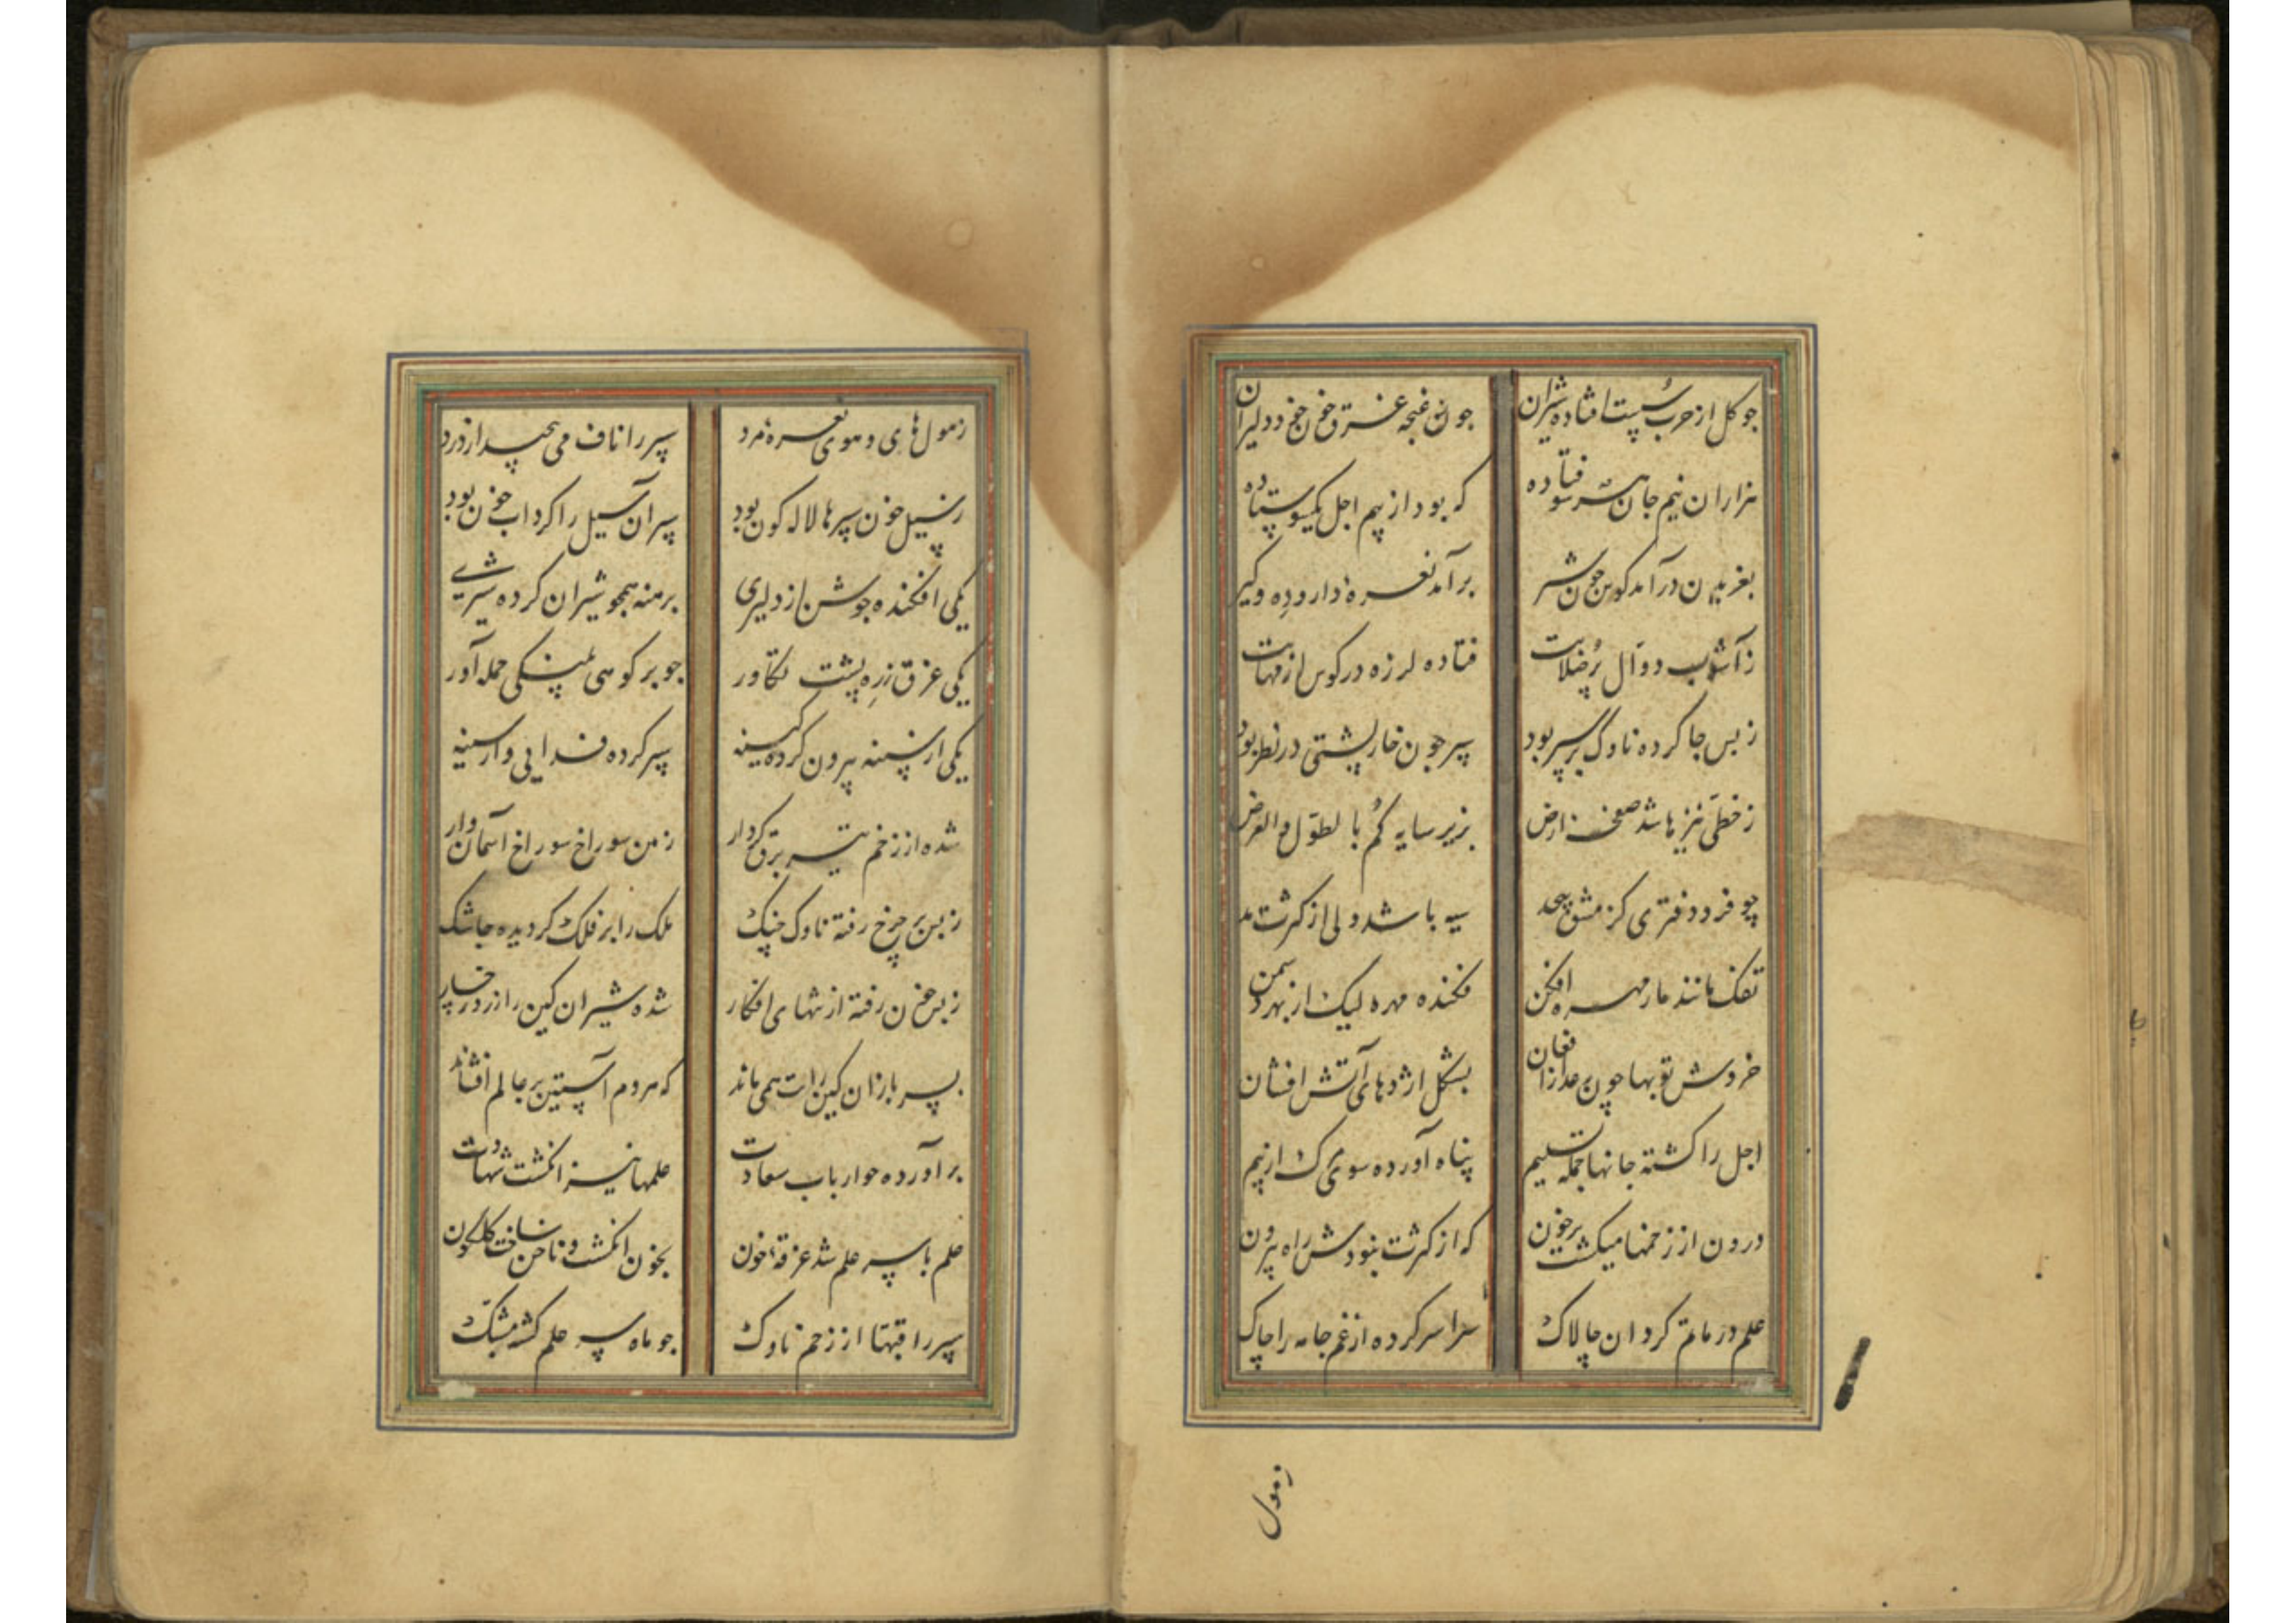 جو کل از حرب سست افتاده شیران جو نغنجه غرق خون خود دلیران
هزاران نیم جان هر سو فتاده که بود از بیم اجل یکسو ستاده
بغریدن درآمد کوس جون شیر برآمد نعره دار و ده و کیر
ز آشوب دوال پر فتاده لرزه در کوس از مهابت
ز بس جا کرده ناوک بر سپر بود سپر جون خارپشتی در نظر بود
ز خطی نیزها شد صفحه ارض بزیر سایه کم با لطول و العرض
چو فرد دفتری کز مشق بیحد سیه باشد ولی از کثرت مد
تفک مانند مار مهره افکن فکنده مهره لیک از بهر دشمن
خروش توبها چون رعد ازافغان بشکل اژدهای آتش افشان
اجل را کشته جانها جمله تسلیم پناه آورده سوی مرک از بیم
درون از زخمها میکشت پرخون که از کثرت نبودش راه بیرون
علم در ماتم کردان چالاک سراسر کرده از غم جامه را چاک
زهول
زهول های و هوی نعره مرد سپر را ناف می پیچید از درد
ز سیل خون سپرها لاله کون بود سپر آن سیل را کرداب خون بود
یکی افکنده جوشن از دلیری برهنه همجو شیران کرده شیری
یکی غرق زره پشت تکاور جو بر کوهی پلنکی حمله آور
یکی از سینه بیرون کرده کینه سپر کرده فدایی وار سینه
شده از زخم تیر برق کردار زمین سوراخ سوراخ آسمان وار
ز بس بر چرخ رفته ناوک جنک ملک را بر فلک کردیده جا تنک
ز بس خون رفته از تنهای افکار شده شیران کین را زرد رخسار
سپر بازان کین را دست می ماند که هر دم آستین بر عالم افشاند
برآورده جو ارباب سعادت علمها نیز انکشت شهادت
علم با سپر علم شد غرقه خون بخون انکشت و ناخن ساخت کلکون
سپر را قبها از زخم ناوک جو ماه سر علم کشته مشبک